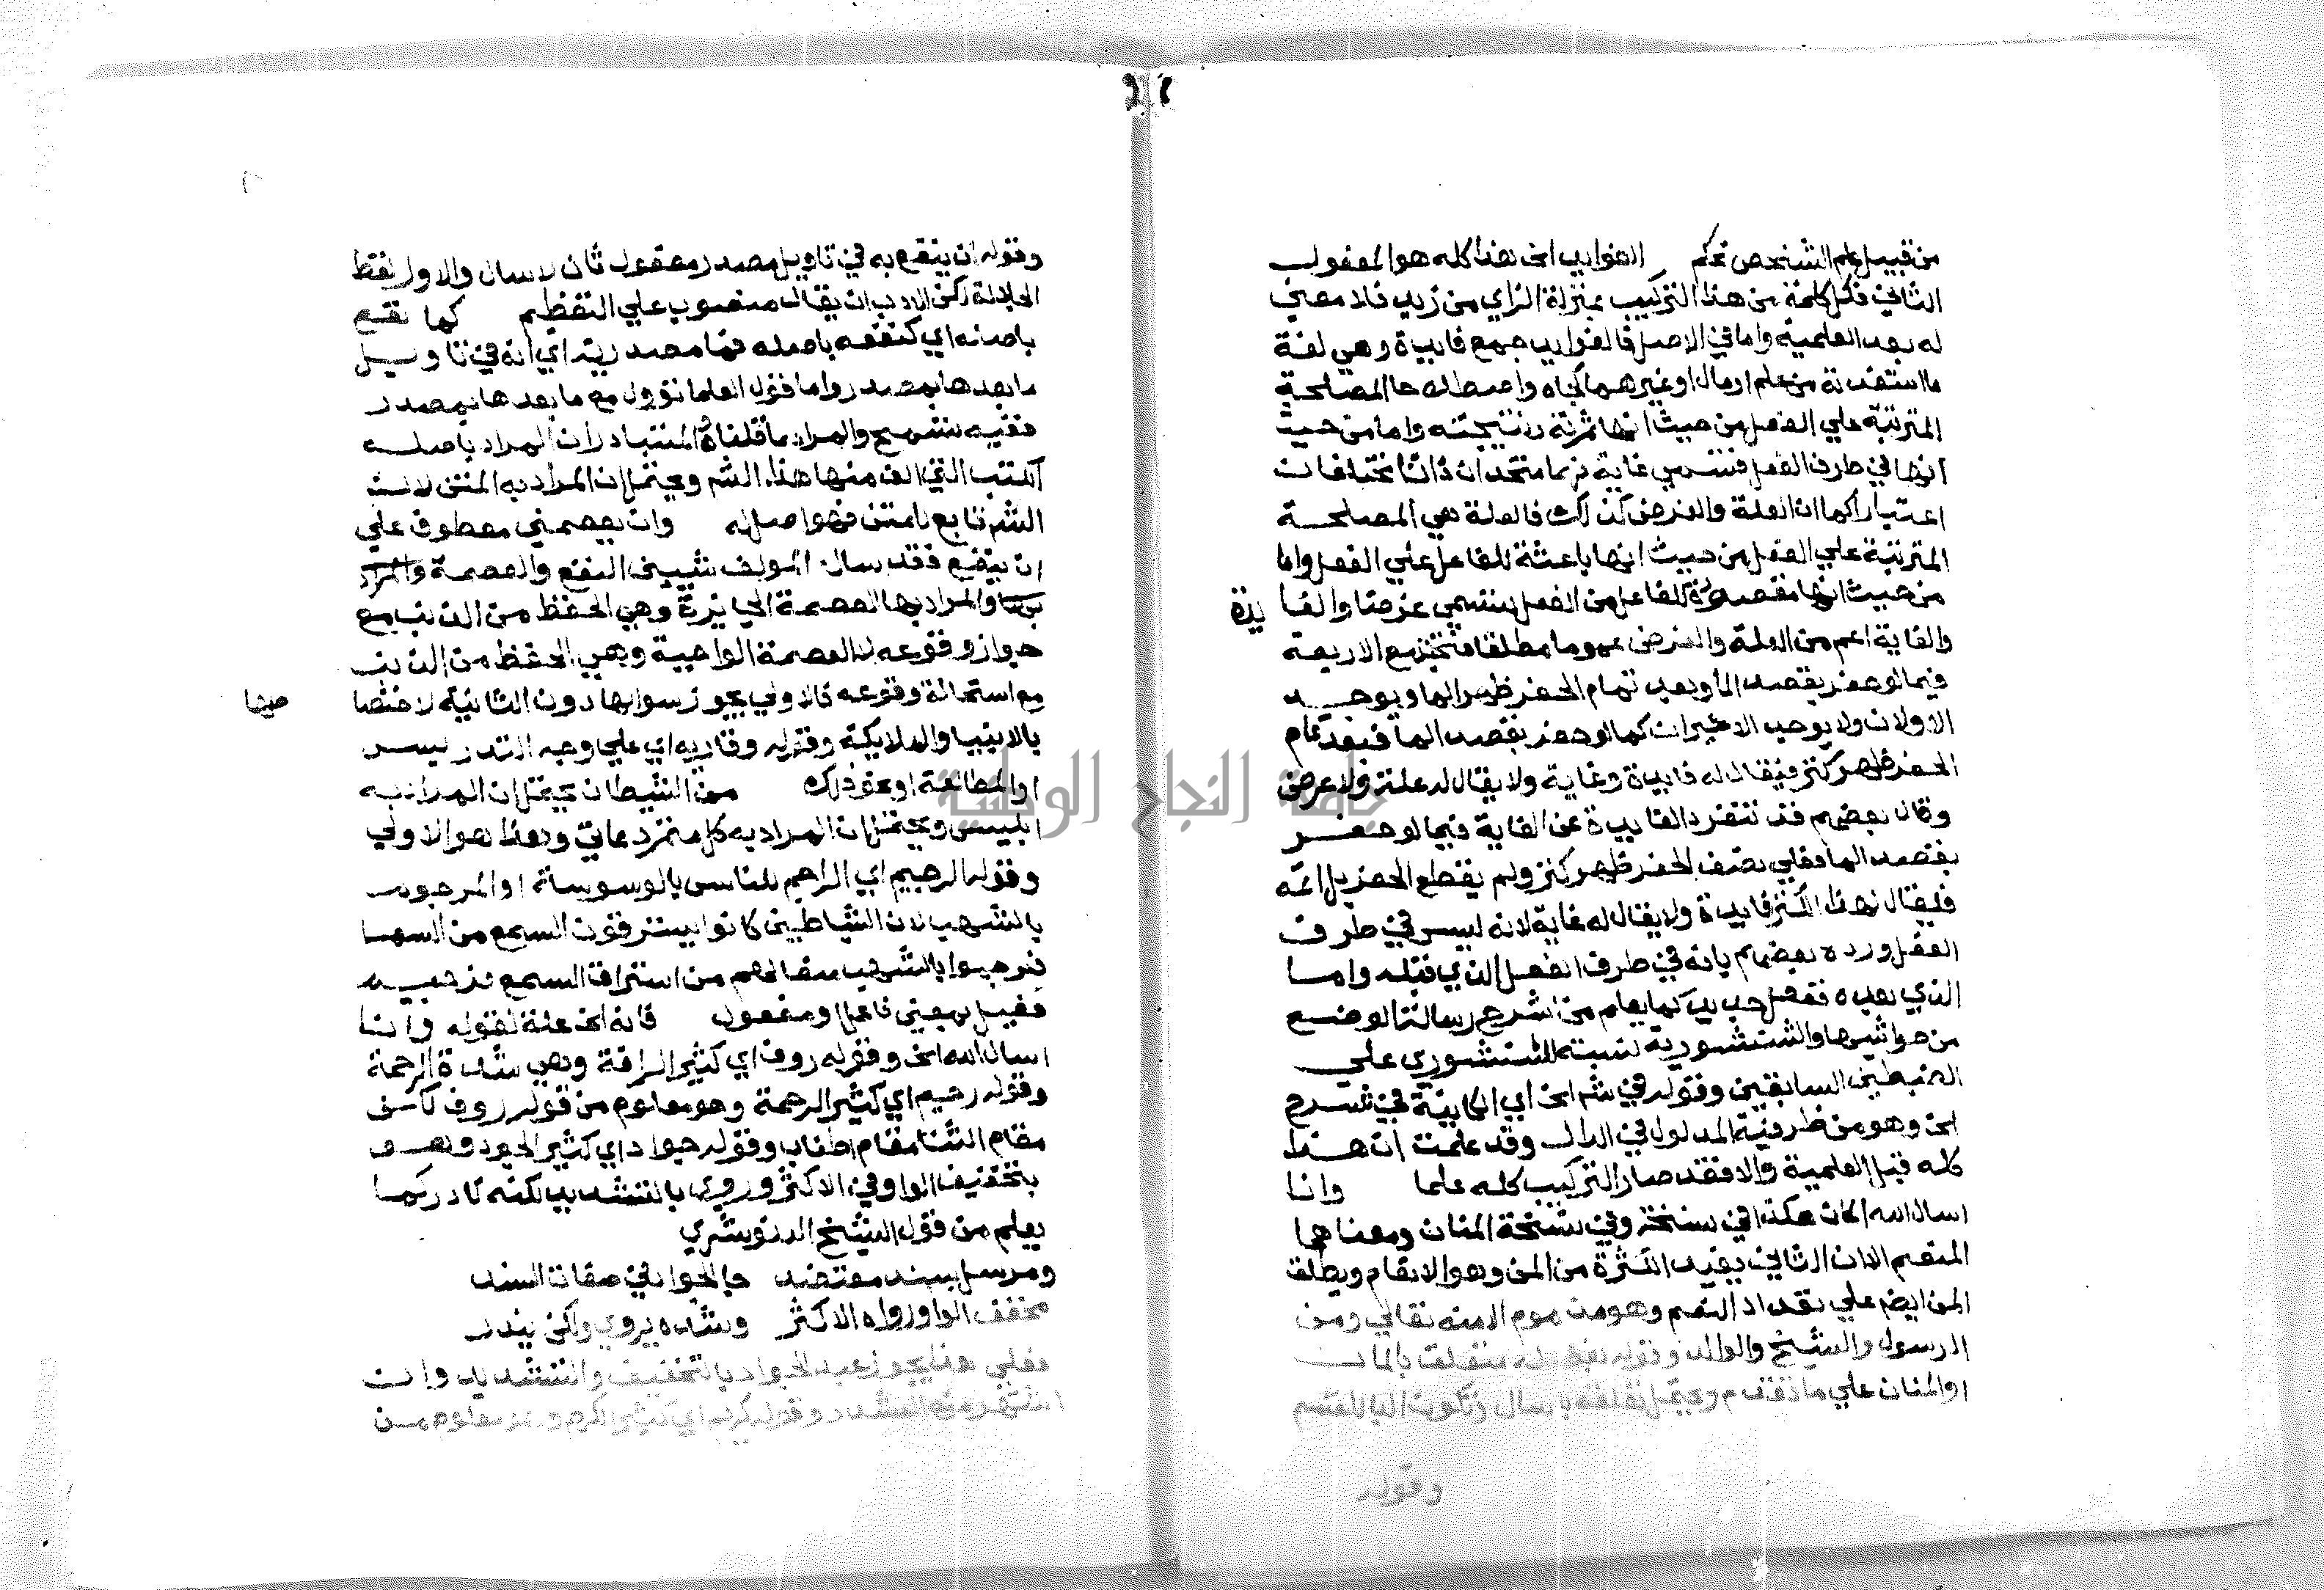 من قبيل علم الشخص تحكم الفوايد الخ هذا كله هو المفعول
الثاني فكل كلمة من هذا التركيب بمنزلة الزاي من زيد فلا معني
له بعد العلمية واما في الاصل فالفوايد جمع فايدة وهي لغة
ما استفدته من علم او مال او غيرهما كجاه واصطلاحا المصلحة
المترتبة علي الفعل من حيث انها ثمرته ونتيجته واما من حيث
انها في طرف الفعل فتسمي غاية فهما متحدان ذاتا مختلفان
اعتبارا كما ان العلة والغرض كذلك فالعلة هي المصلحة
المترتبة علي الفعل من حيث انها باعثة للفاعل علي الفعل واما
من حيث انها مقصودة للفاعل من الفعل فتسمي غرضا والفا يدة
والغاية اعم من العلة والغرض عموما مطلقا فتجتمع الاربعة
فيما لو حفر بقصد الما وبعد تمام الحفر ظهر الما ويوجد
الاولان ولا يوجد الاخيران كما لو حفر بقصد الما فبعد تمام
الحفر ظهر كنز فيقال له فايدة وغاية ولا يقال له علة ولا غرض
وقال بعضهم قد تنفرد الفايدة عن الغاية فيما لو حفر
بقصد الما فعلي نصف الحفر ظهر كنز ولم يقطع الحفر بل اتمه
فيقال لهذا الكنز فايدة ولا يقال له غاية لانه ليس في طرف
الفعل ورده بعضهم بانه في طرف الفعل الذي قبله واما
الذي بعده ففعل جديد كما يعلم من شرح رسالة الوضع
من حواشيها والشنشورية نسبته للشنشوري علي
الضبطين السابقين وقوله في شر الخ اي الكاينة في شرح
الخ وهو من ظرفية المدلول في الدال وقد علمت ان هذا
كله قبل العلمية والا فقد صار التركيب كله علما وانا
اسال الله المان هكذا في نسخة وفي نسخة المنان ومعناهما
المنعم الا ان الثاني يفيد الكثرة من المن وهو الانعام ويطلق
المن ايض علي تعداد النعم وهو مذموم الا منه تعالي ومن
الرسول والشيخ والوالد وقوله بفضله متعلق بالمان
او المنان علي ما تقدم ويحتمل تعلقه باسال وتكون البا للقسم
وقوله
وقوله ان ينفع به في تاويل مصدر مفعول ثان لاسال والاول لفظ
الجلالة لكن الادب ان يقال منصوب علي التعظيم كما نفع
باصله اي كنفعه باصله فما مصدرية اي انه في تاويل
ما بعدها بمصدر واما قول العلما تؤول مع ما بعدها بمصدر
ففيه تسمح والمراد ما قلناه المتبادر ان المراد باصله
الكتب التي الف منها هذا الشر ويحتمل ان المراد به المتن لان
الشر تابع للمتن فهو اصل له وان يعصمني معطوف علي
ان ينفع فقد سال المولف شيين النفع والعصمة والمراد
بها والمراد بها العصمة الجايزة وهي الحفظ من الذنب مع
جواز وقوعه لا العصمة الواجبة وهي الحفظ من الذنب
مع استحالة وقوعه فالاولي يجوز سوالها دون الثانية لاختصا صها
بالانبيا والملايكة وقوله وقاريه اي علي وجه التدريس
او المطالعة او نحو ذلك من الشيطان يحتمل ان المراد به
ابليس ويحتمل ان المراد به كل متمرد عاتي وهذا هو الاولي
وقوله الرجيم اي الراجم للناس بالوسوسة او المرجوم
بالشهب لان الشياطين كانوا يسترقون السمع من السما
فرجموا بالشهب منعا لهم من استراق السمع فرجيم
فعيل بمعني فاعل او مفعول فانه الخ علة لقوله وانا
اسال الله الخ وقوله روف اي كثير الرافة وهي شدة الرحمة
وقوله رحيم اي كثير الرحمة وهو معلوم من قوله روف لكن
مقام الثنا مقام اطناب وقوله جواد اي كثير الجود وهو
بتخفيف الواو في الاكثر وروي بالتشديد لكنه نادر كما
يعلم من قول الشيخ الدنوشري
ومرسل بسند معتضد جا الجواد في صفات السند
مخفف الواو رواه الاكثر وشده يروي ولكن يندر
فعلي هذا يجوز عبد الجواد بالتخفيف والتشديد وان
اشتهر منع التشديد وقوله كريم اي كثير الكرم وهو معلوم من
جامعة النجاح الوطنية